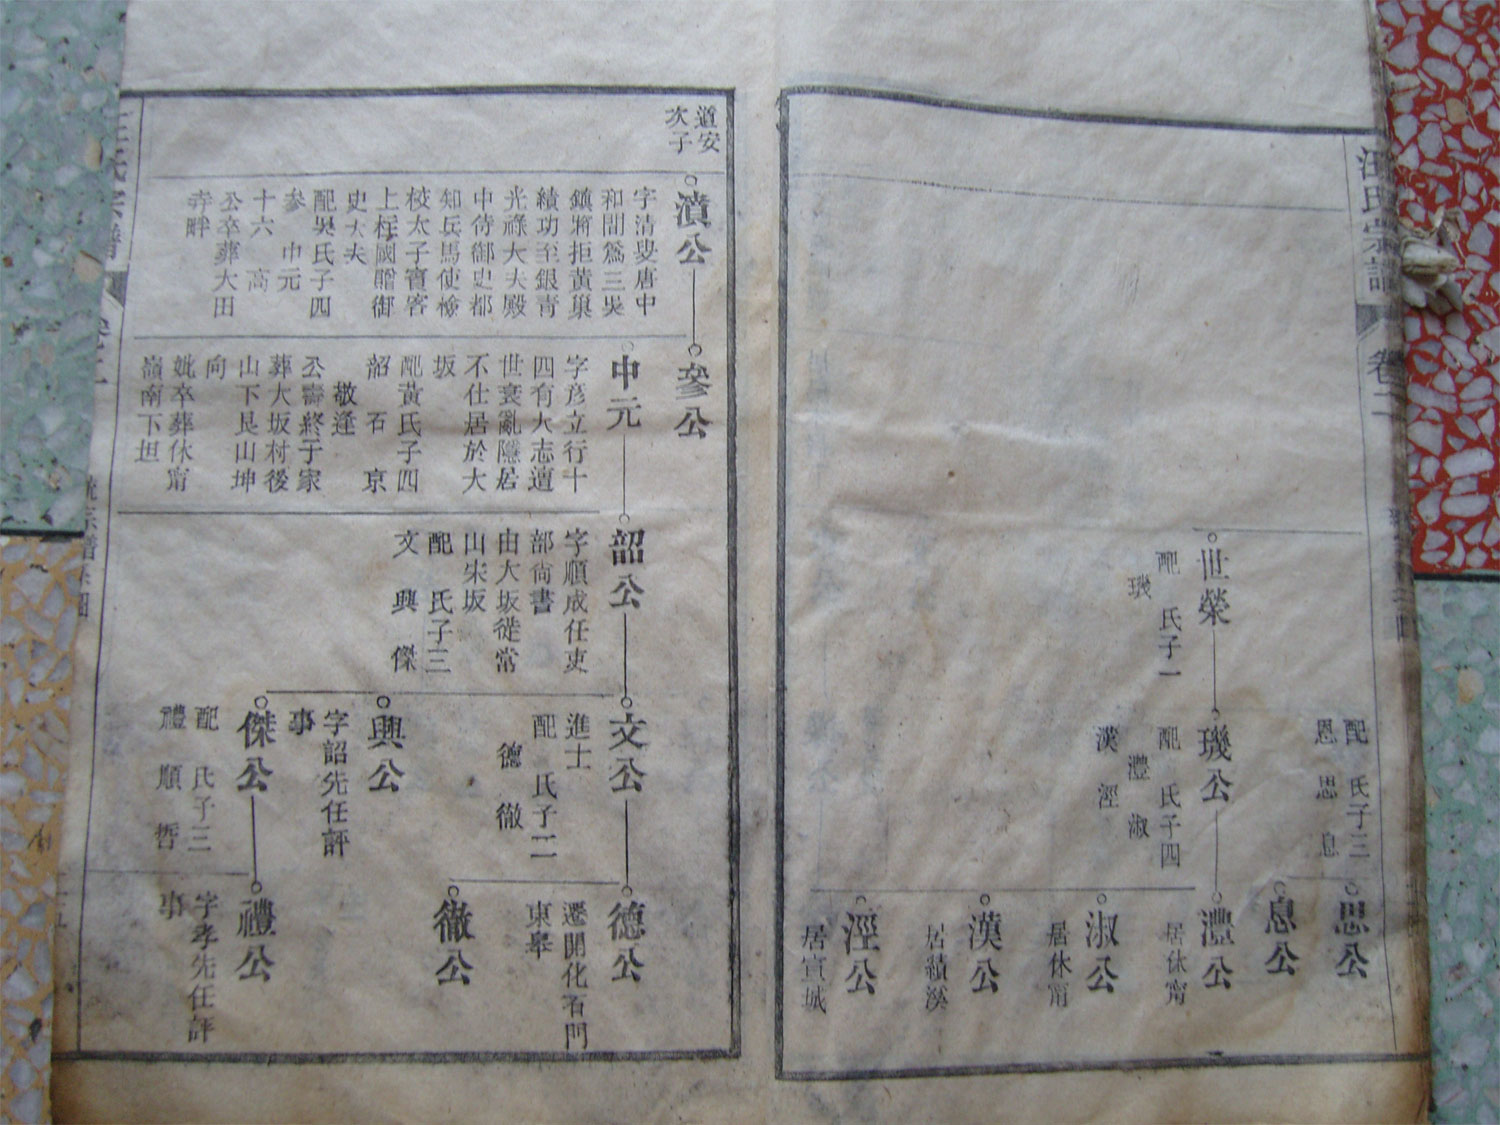 汪氏宗譜
卷二
配　氏子三
恩　思　息
思公
息公
世榮
配　氏子一
璣
璣公
配　氏子四
灃　淑
漢　涇
灃公
居休甯
淑公
居休甯
漢公
居績溪
涇公
居宣城
道安
次子
濆公
字清叟唐中
和間為三吳
鎮將拒黃巢
績功至銀青
光祿大夫殿
中侍御史都
知兵馬使檢
校太子賓客
上柱國贈御
史大夫
配吳氏子四
參　中元
十六　高
公卒葬大田
寺畔
參公
中元
字彦立行十
四有大志遭
世衰亂隱居
不仕居於大
坂
配黃氏子四
韶　石　京
敬逢
公壽終于家
葬大坂村後
山下艮山坤
向
妣卒葬休甯
嶺南下坦
韶公
字順成任吏
部尚書
由大坂徙常
山宋坂
配　氏子三
文　興　傑
文公
進士
配　氏子二
德　徹
興公
字韶先任評
事
傑公
配　氏子三
禮　順　哲
德公
遷開化石門
東皋
徹公
禮公
字孝先任評
事